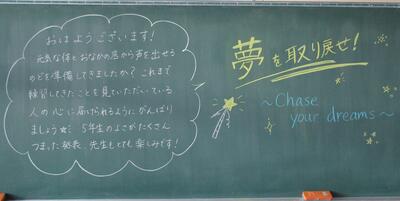 おはようございます!
元気な体とおなかの底から声を出せる
のどを準備してきましたか? これまで
練習してきたことを見ていただいている
人の心に届けられるようにがんばり
ましょう☆ 5年生のよさがたくさん
つまった発表、先生もとても楽しみです!
夢を取り戻せ!
～Chase
your dreams～